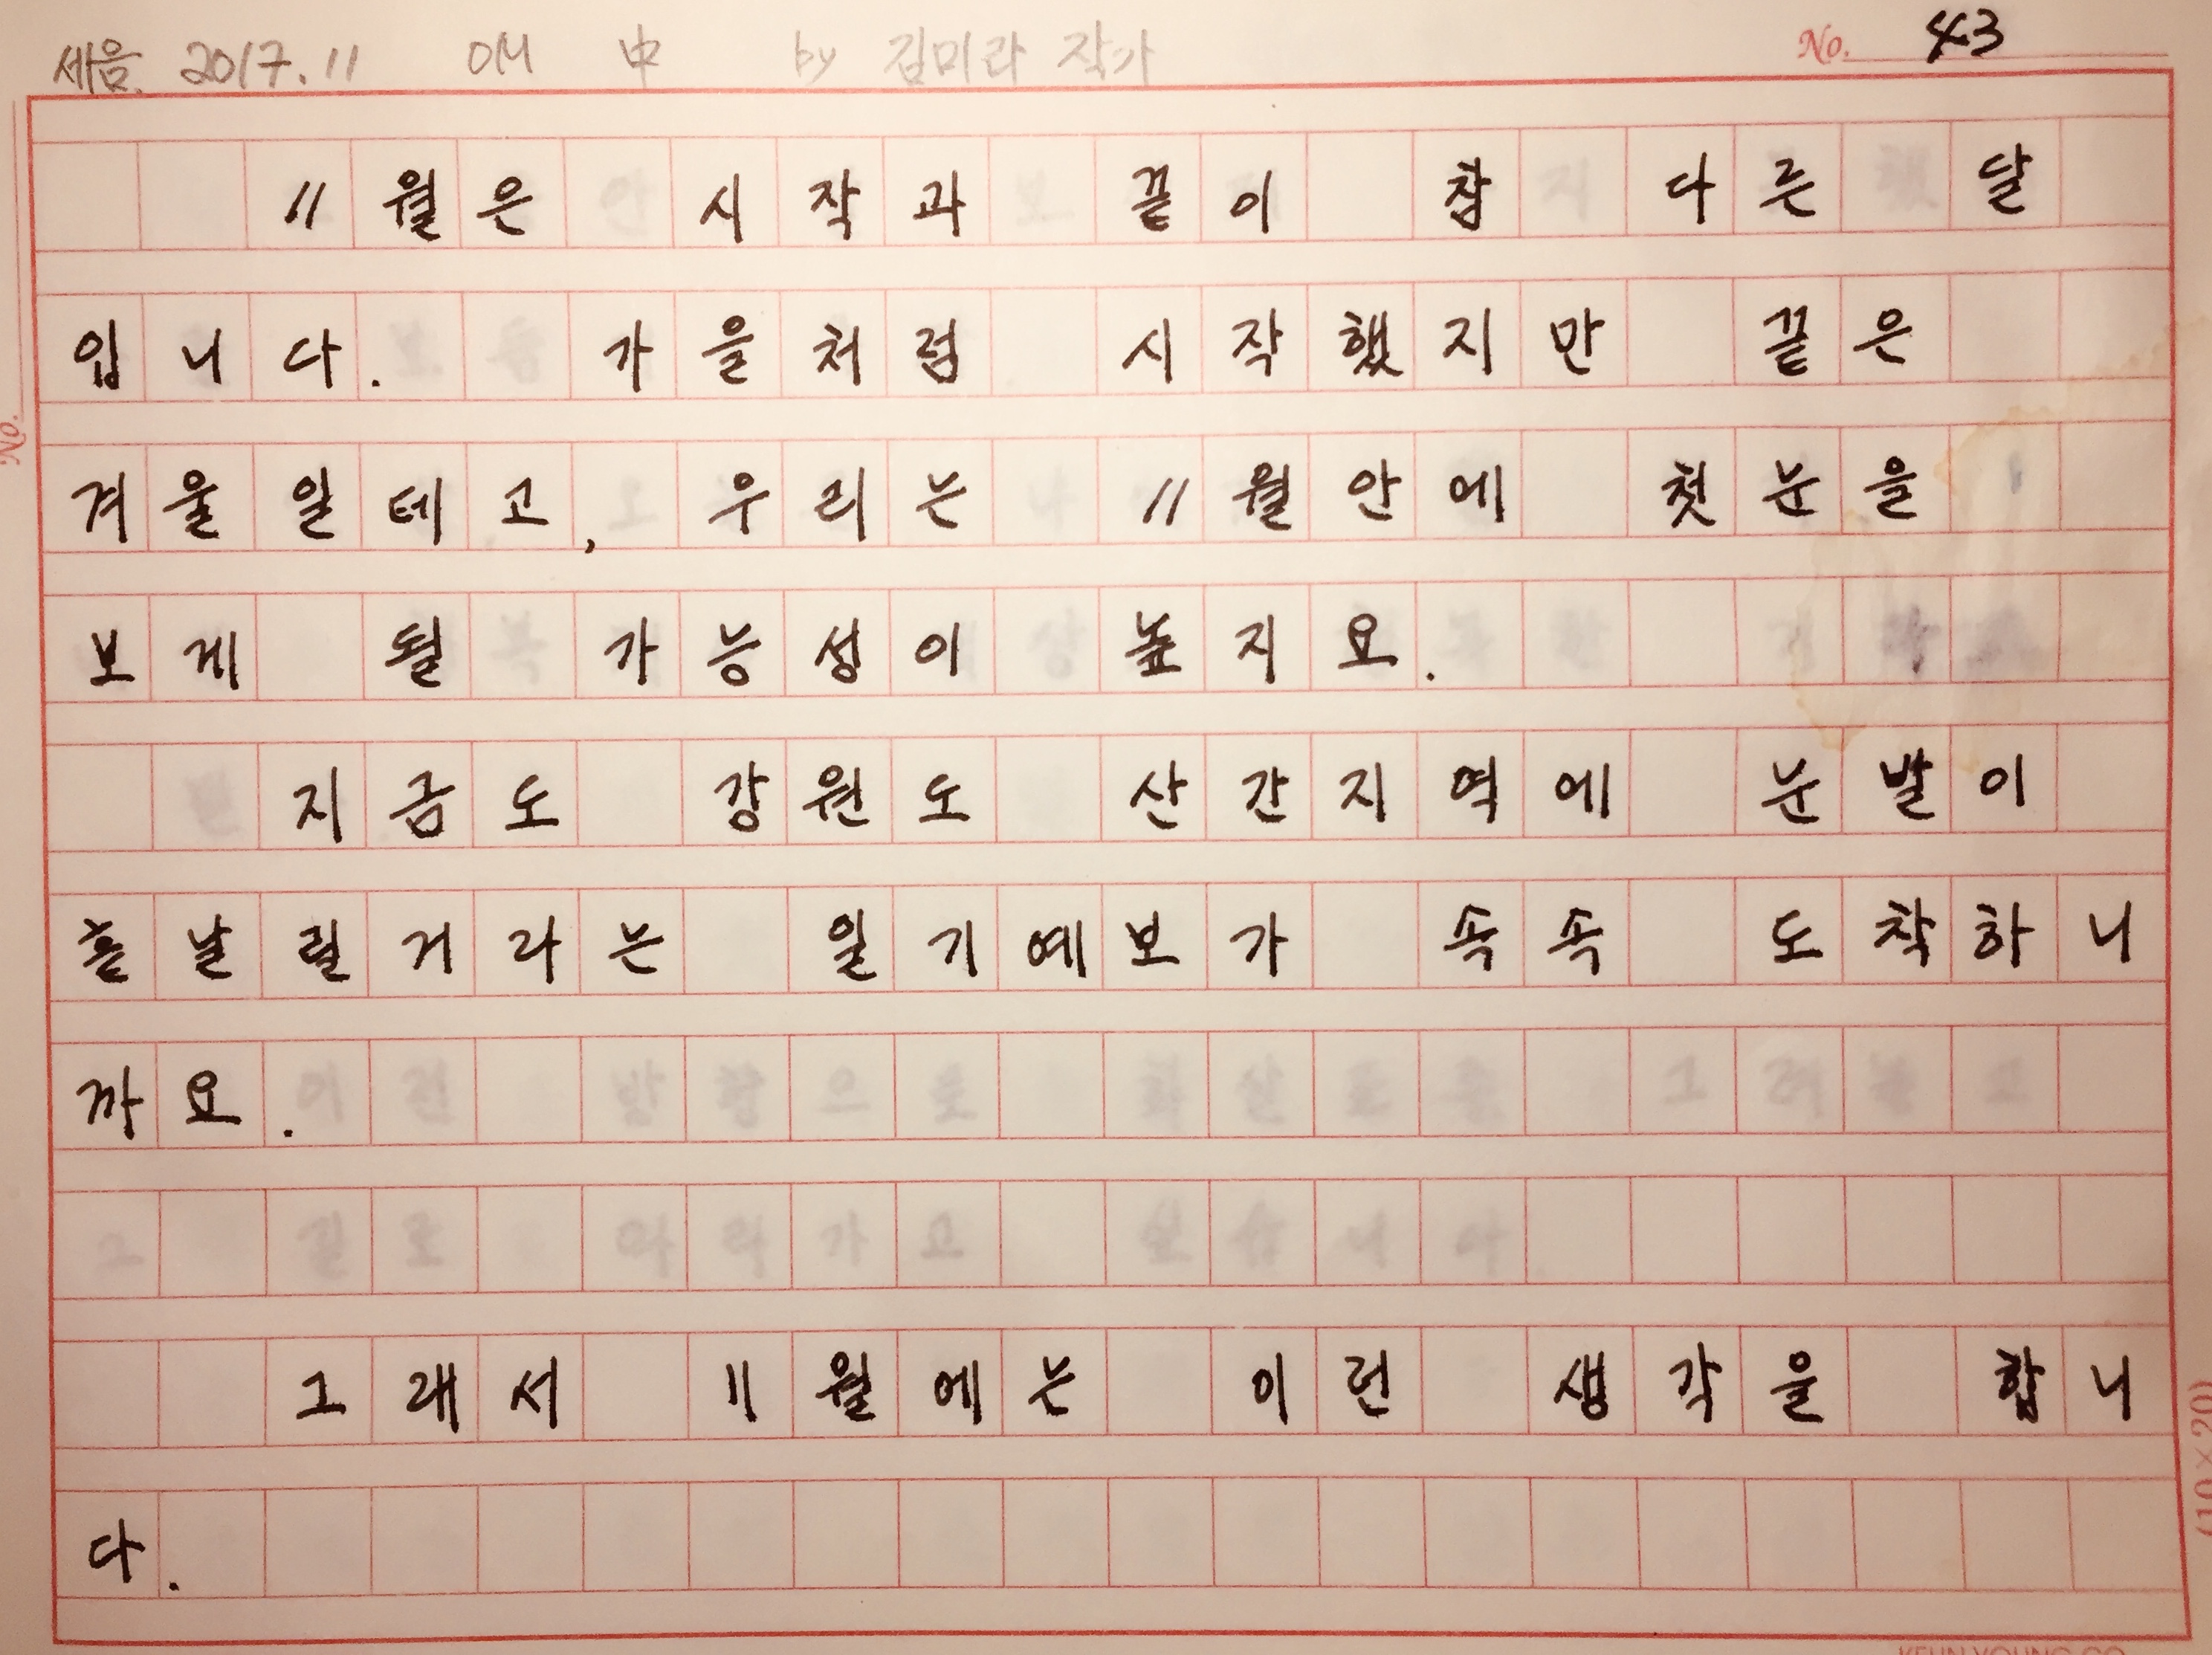 세음. 2017.11 OM 中 by 김미라 작가
No. 43
11월은 시작과 끝이 참 다른 달
입니다. 가을처럼 시작했지만 끝은
겨울일테고, 우리는 11월안에 첫눈을
보게 될 가능성이 높지요.
지금도 강원도 산간지역에 눈발이
흩날릴거라는 일기예보가 속속 도착하니
까요.
그래서 11월에는 이런 생각을 합니
다.
No.
(10×20)